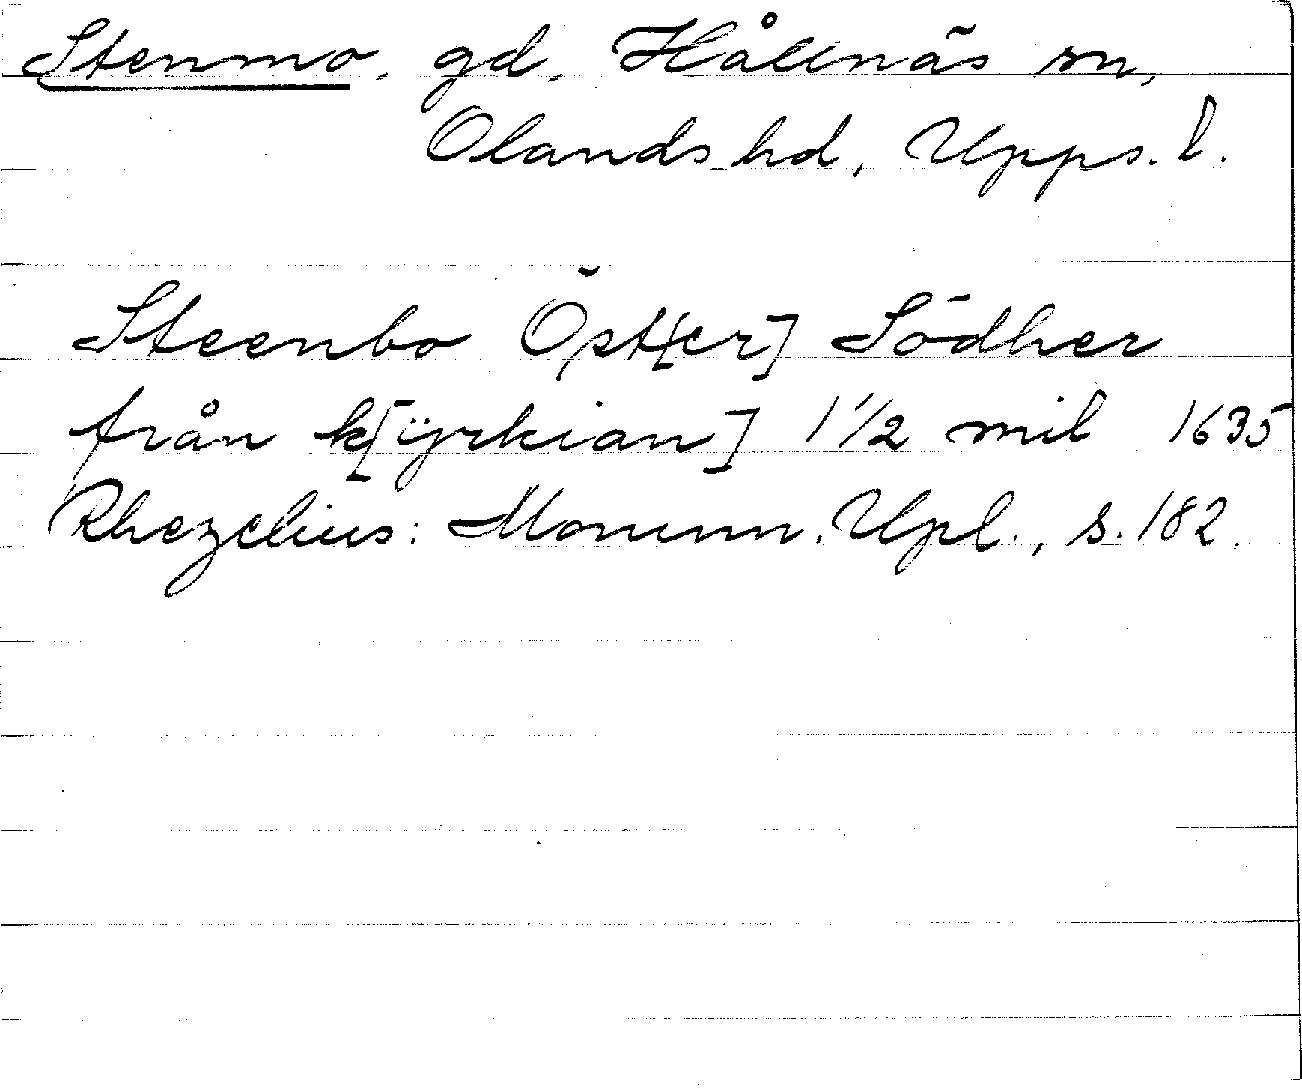 Stenmo, gd, Hållnäs sn,
Olands hd, Upps. l.
Steenbo Öst[er] Södher
från k[ÿrkian] 1 1/2 mil 1635
Rhezelius: Monum. Upl., s. 182.